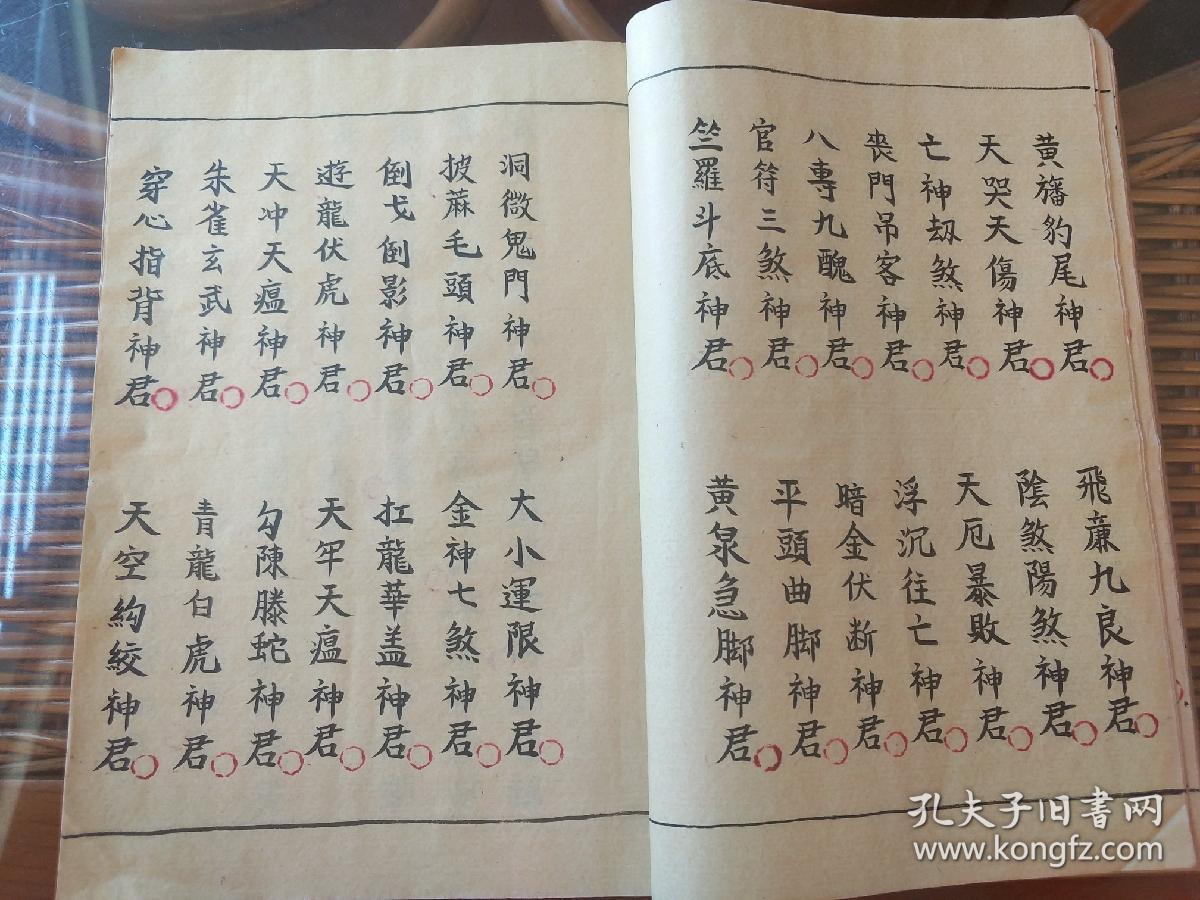 黄旛豹尾神君
飛廉九良神君
天哭天傷神君
陰煞陽煞神君
亡神刼煞神君
天厄暴敗神君
喪門吊客神君
浮沉往亡神君
八專九醜神君
暗金伏断神君
官符三煞神君
平頭曲脚神君
竺羅斗底神君
黄泉急脚神君
洞微鬼門神君
大小運限神君
披蔴毛頭神君
金神七煞神君
倒戈倒影神君
扛龍華盖神君
遊龍伏虎神君
天牢天瘟神君
天冲天瘟神君
勾陳騰蛇神君
朱雀玄武神君
青龍白虎神君
穿心指背神君
天空絞絞神君
孔夫子旧书网
www.kongfz.com